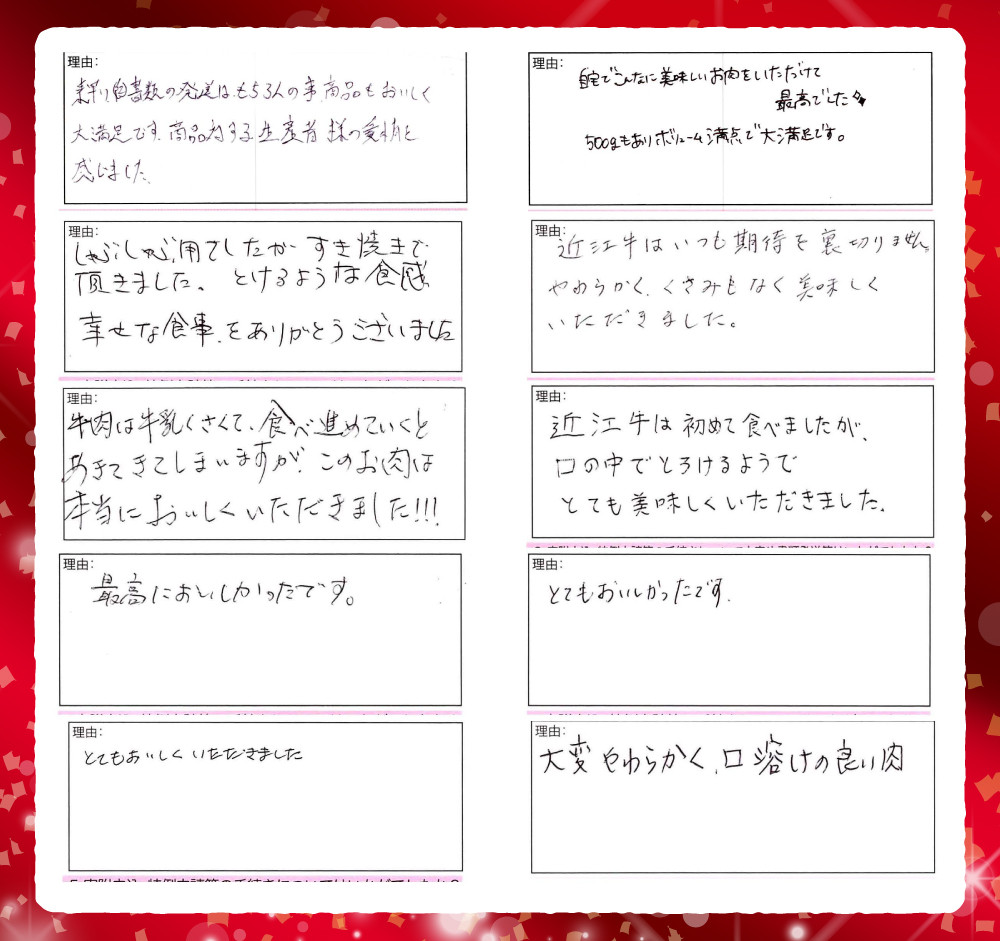 理由:
の発送はもちろんの事商品もおいしく
大満足です。商品対する生産者様の愛情と
感じました。
理由:
しゃぶしゃぶ用でしたが すき焼きで
頂きました。とけるような食感
幸せな食事、をありがとうございました
理由:
牛肉は牛乳くさくて、食べ進めていくと
あきてきてしまいますが、このお肉は
本当においしくいただきました!!!
理由:
最高においしかったです。
理由:
とてもおいしくいただきました
理由:
自宅でこんなに美味しいお肉をいただけて
最高でした
500gもありボリューム満点で大満足です。
理由:
近江牛はいつも期待を裏切りません。
やわらかく、くさみもなく美味しく
いただきました。
理由:
近江牛は初めて食べましたが、
口の中でとろけるようで
とても美味しくいただきました。
理由:
とてもおいしかったです.
理由:
大変やわらかく、口溶けの良い肉